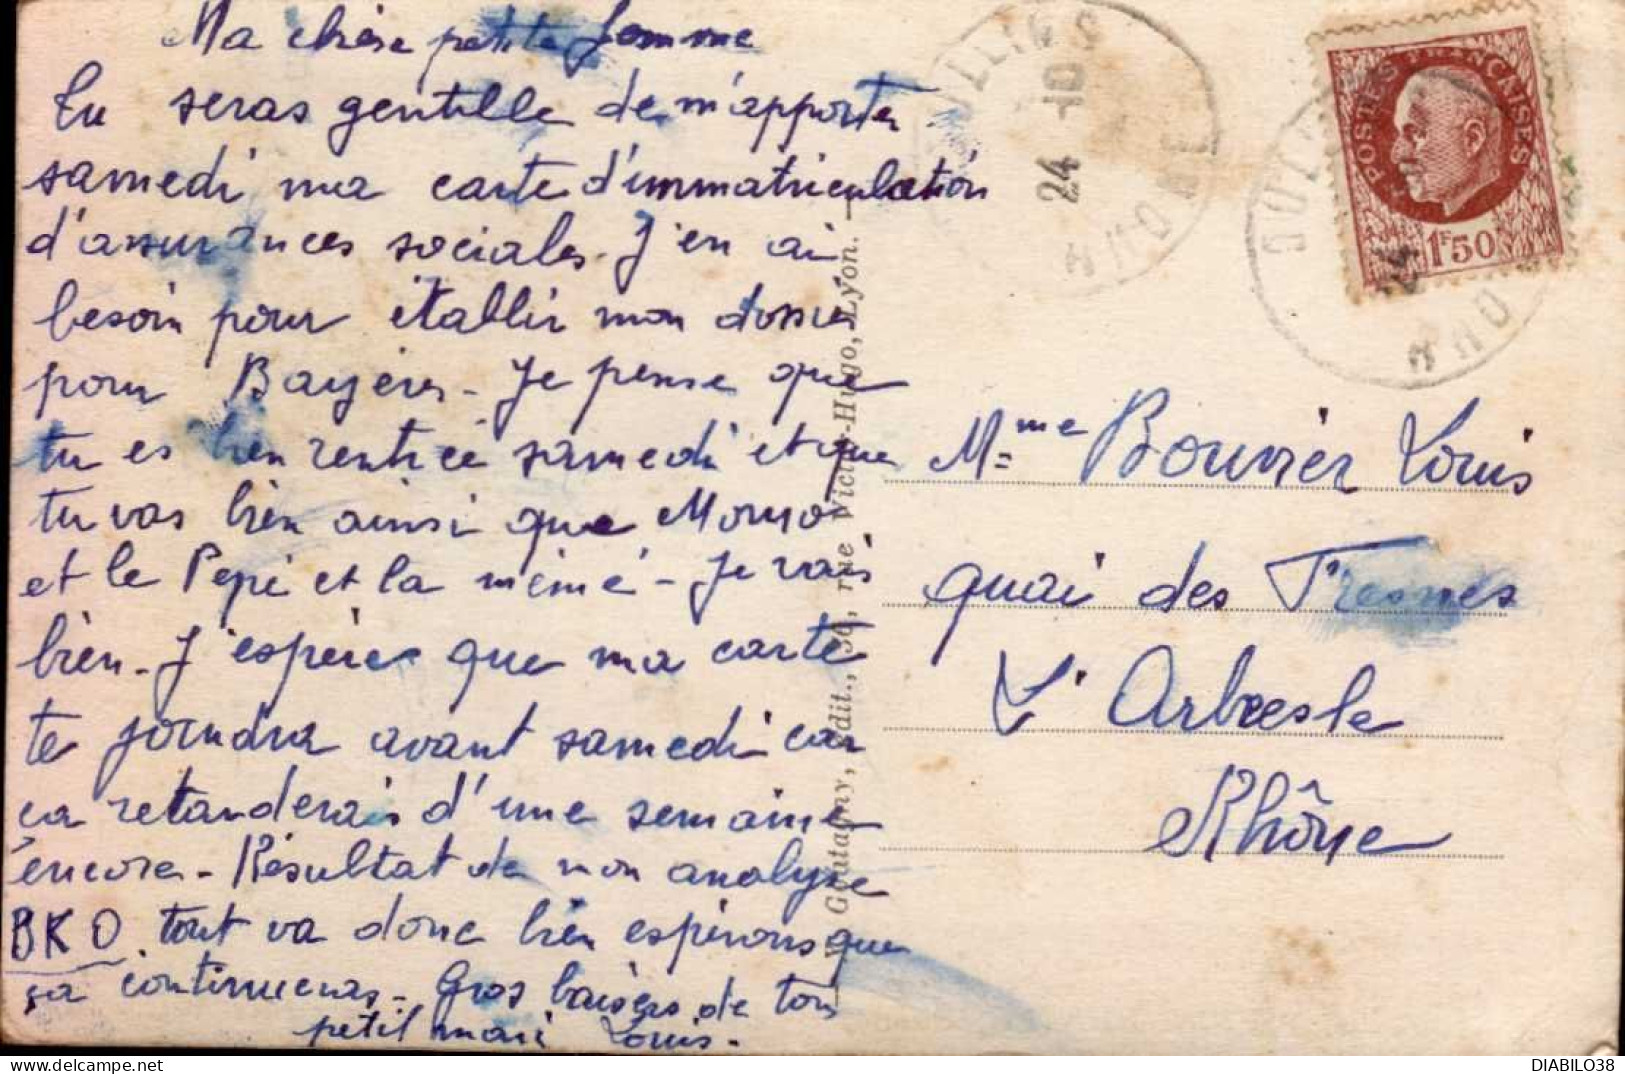 Ma chère petite femme
Tu seras gentille de m'apporter
samedi ma carte d'immatriculation
d'assurances sociales. J'en ai
besoin pour établir mon dossier
pour Bayère - Je pense que
tu es bien rentrée samedi et que
tu vas bien ainsi que Momo
et le Pépé et la mémé - Je vais
bien - J'espère que ma carte
te joindra avant samedi car
ça retarderais d'une semaine
encore - Résultat de mon analyse
BKO tout va donc bien espérons que
ça continueras - Gros baisers de ton
petit mari Louis -
Goutagny, édit., 36, rue Victor-Hugo, Lyon.
24 10
RHONE
POSTES FRANÇAISES
1F50
OULL
24
RHO
Mme Bouvier Louis
quai des Tresmes
L'Arbresle
Rhône
DIABILO38